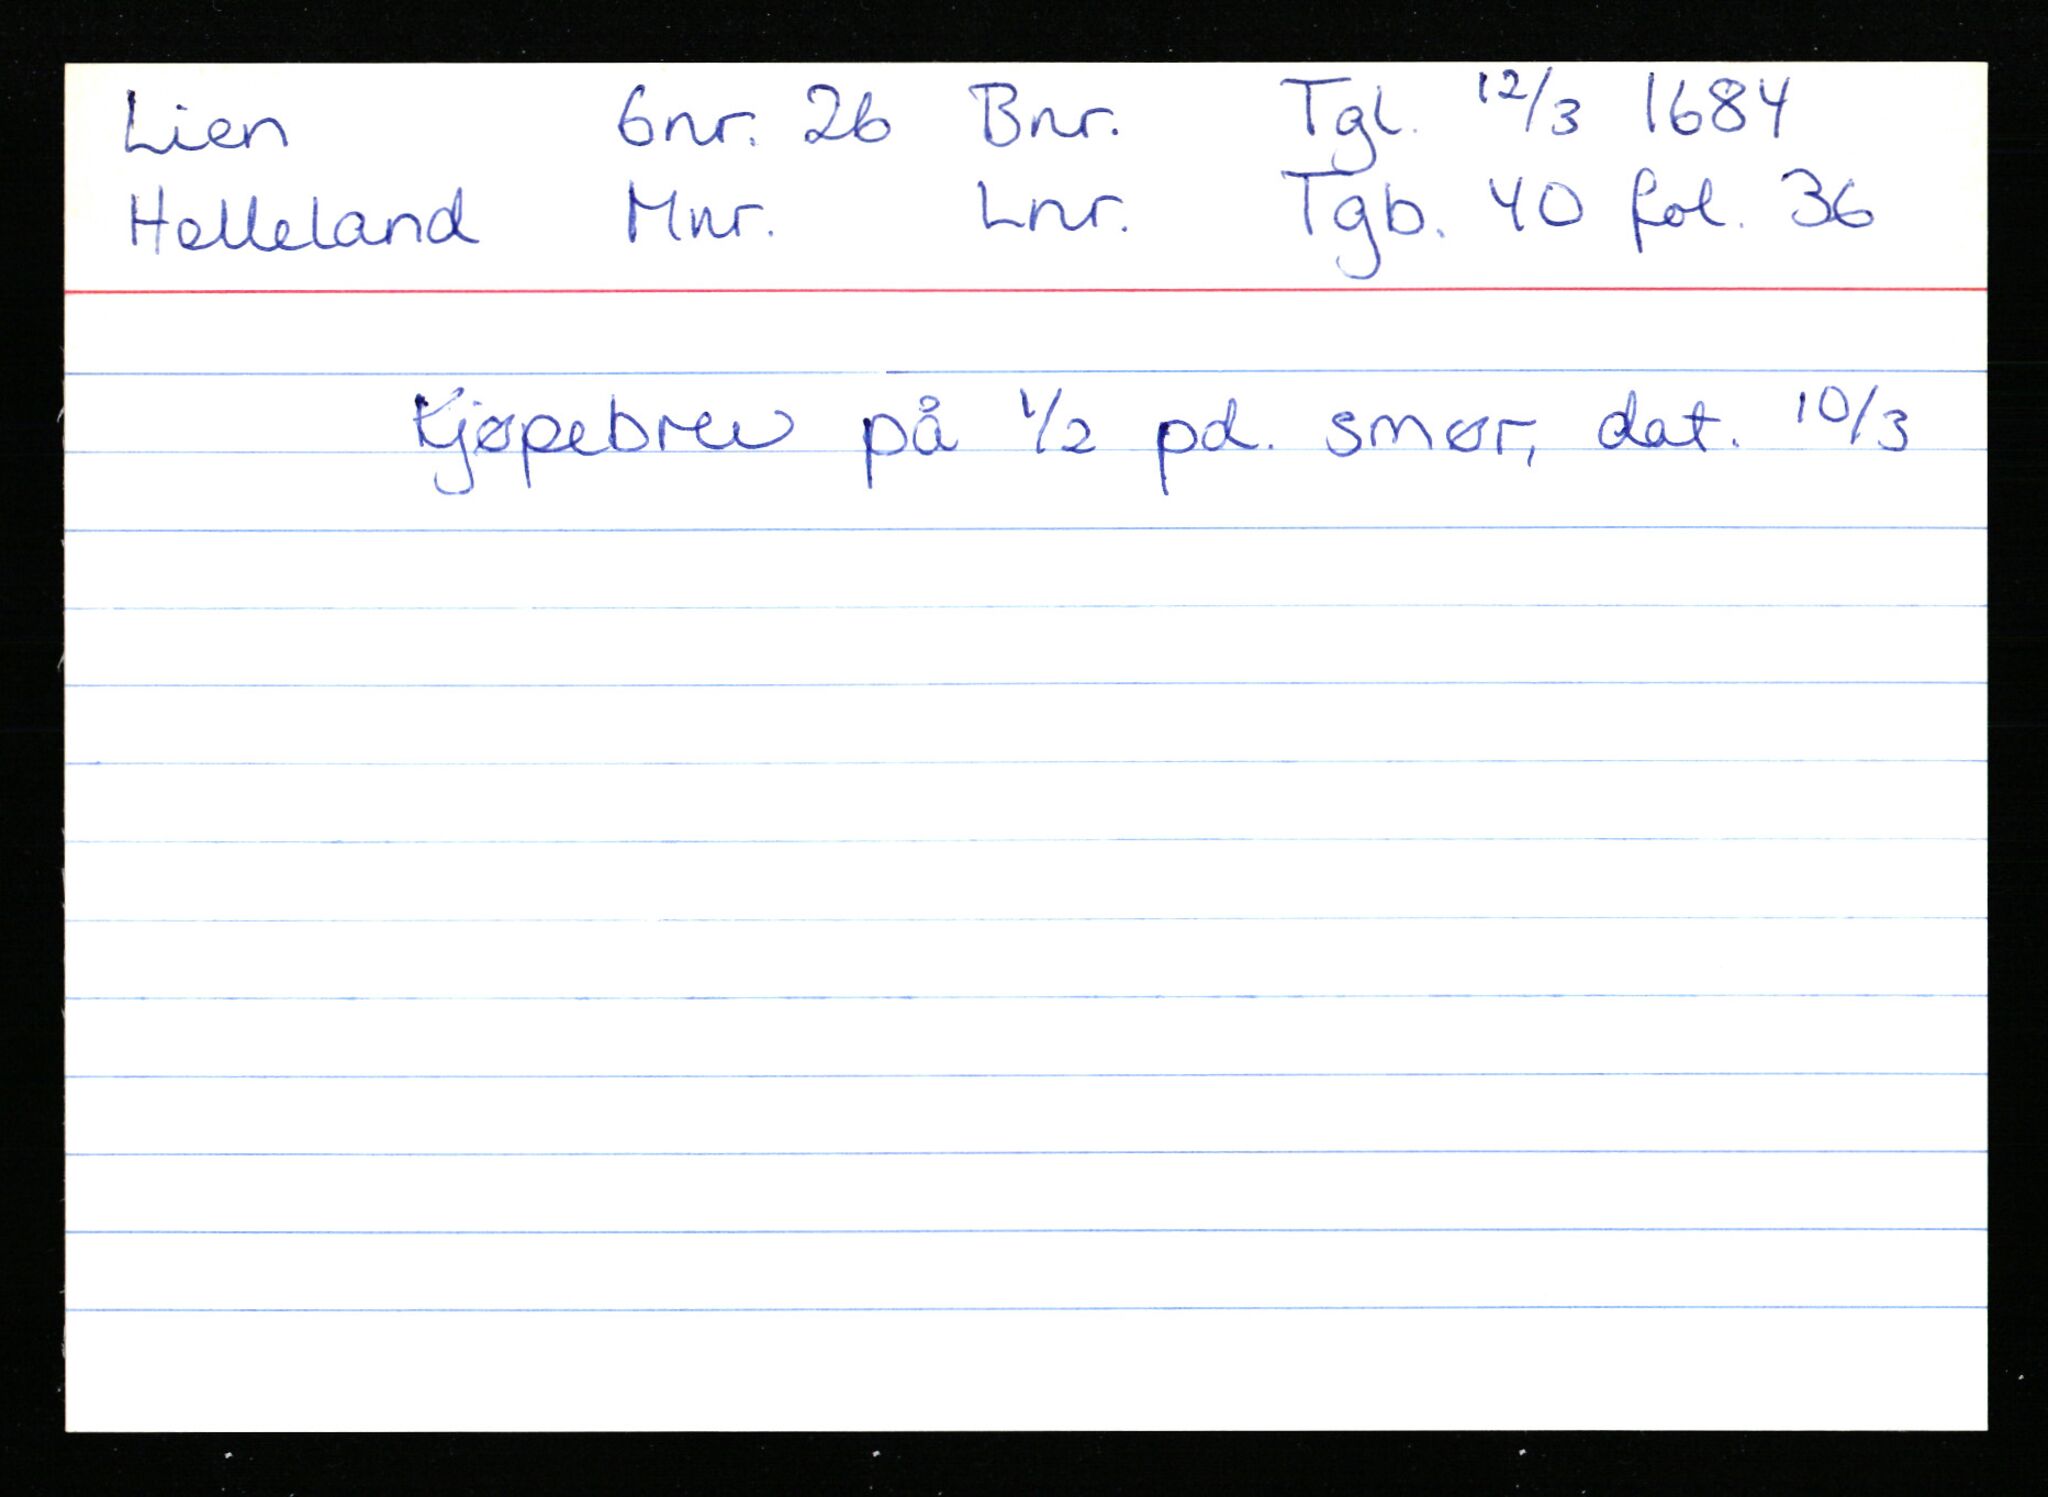 Lien Gnr. 26 Bnr. Tgl. 12/3 1684
Helleland Mnr. Lnr. Tgb. 40 fol. 36
Kjøpebrev på 1/2 pd. smør, dat. 10/3